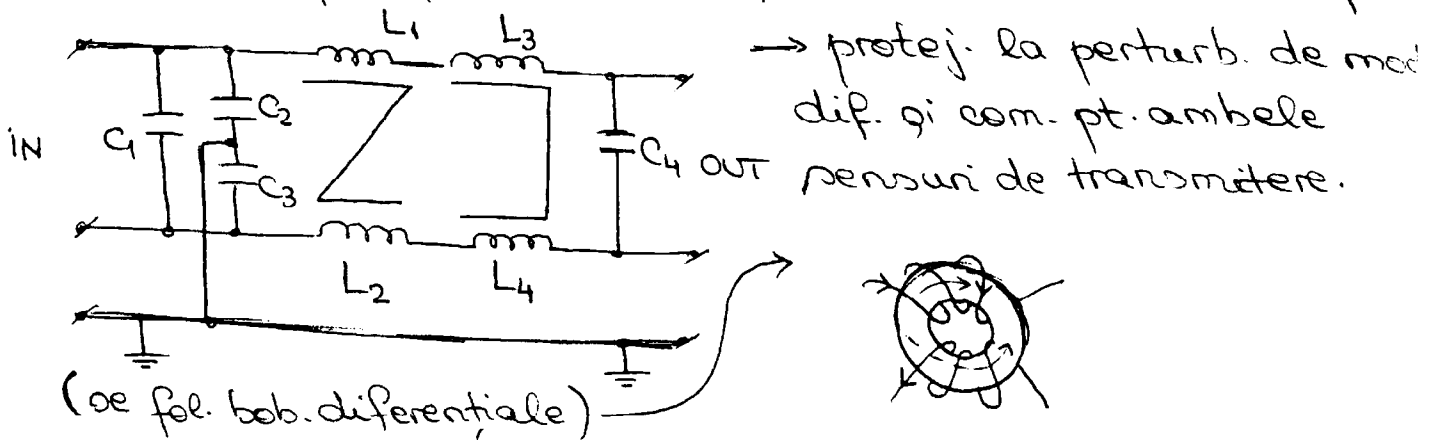 L1 L3
→ protej. la perturb. de mod
dif. și com. pt. ambele
sensuri de transmitere.
C1 C2
C3
C4
IN
OUT
L2 L4
(se fol. bob. diferențiale)